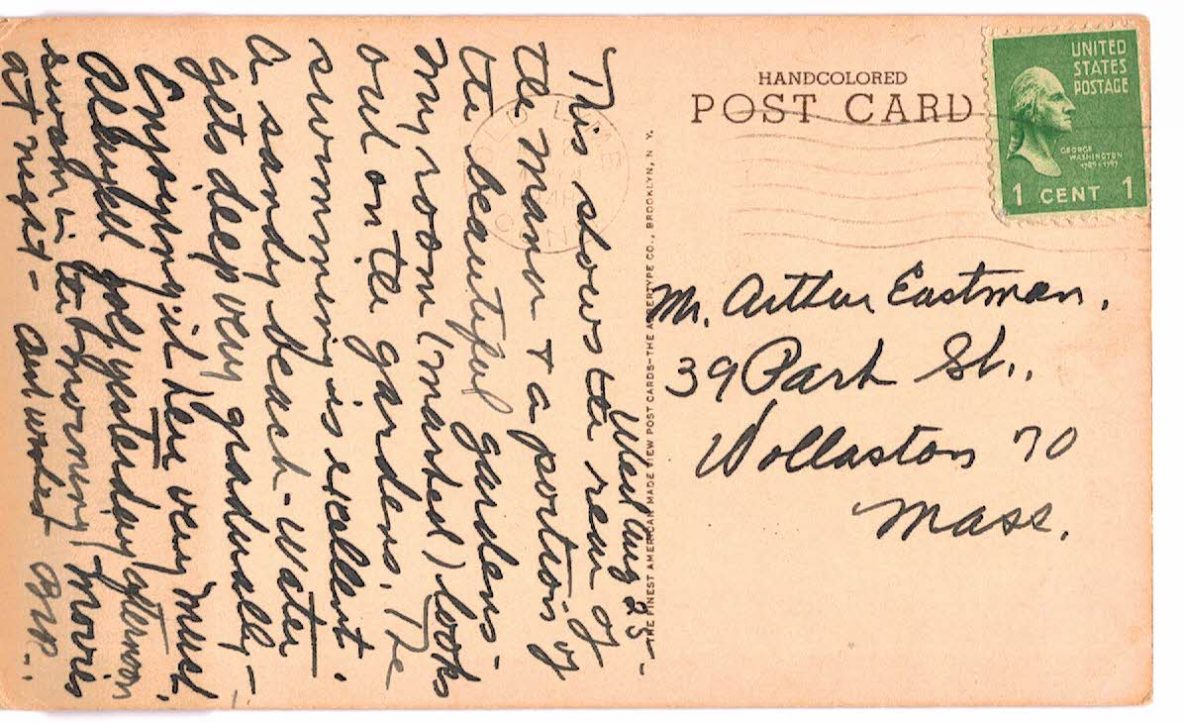 Wed Aug 25-
This shows the rear of
the Manor + a portion of
the beautiful gardens-
My room (marked) looks
out on the gardens. The
swimming is excellent.
A sandy beach - Water
gets deep very gradually-
Enjoying it here very much.
Played golf yesterday afternoon
swam in the morning, movies
at night - and
HANDCOLORED
POST CARD
UNITED
STATES
POSTAGE
GEORGE
WASHINGTON
1789-1797
1 CENT 1
LYME
CONN
THE FINEST AMERICAN MADE VIEW POST CARDS-THE ALBERTYPE CO., BROOKLYN, N. Y.
Mr. Arthur Eastman,
39 Park St.,
Wollaston 70
Mass.